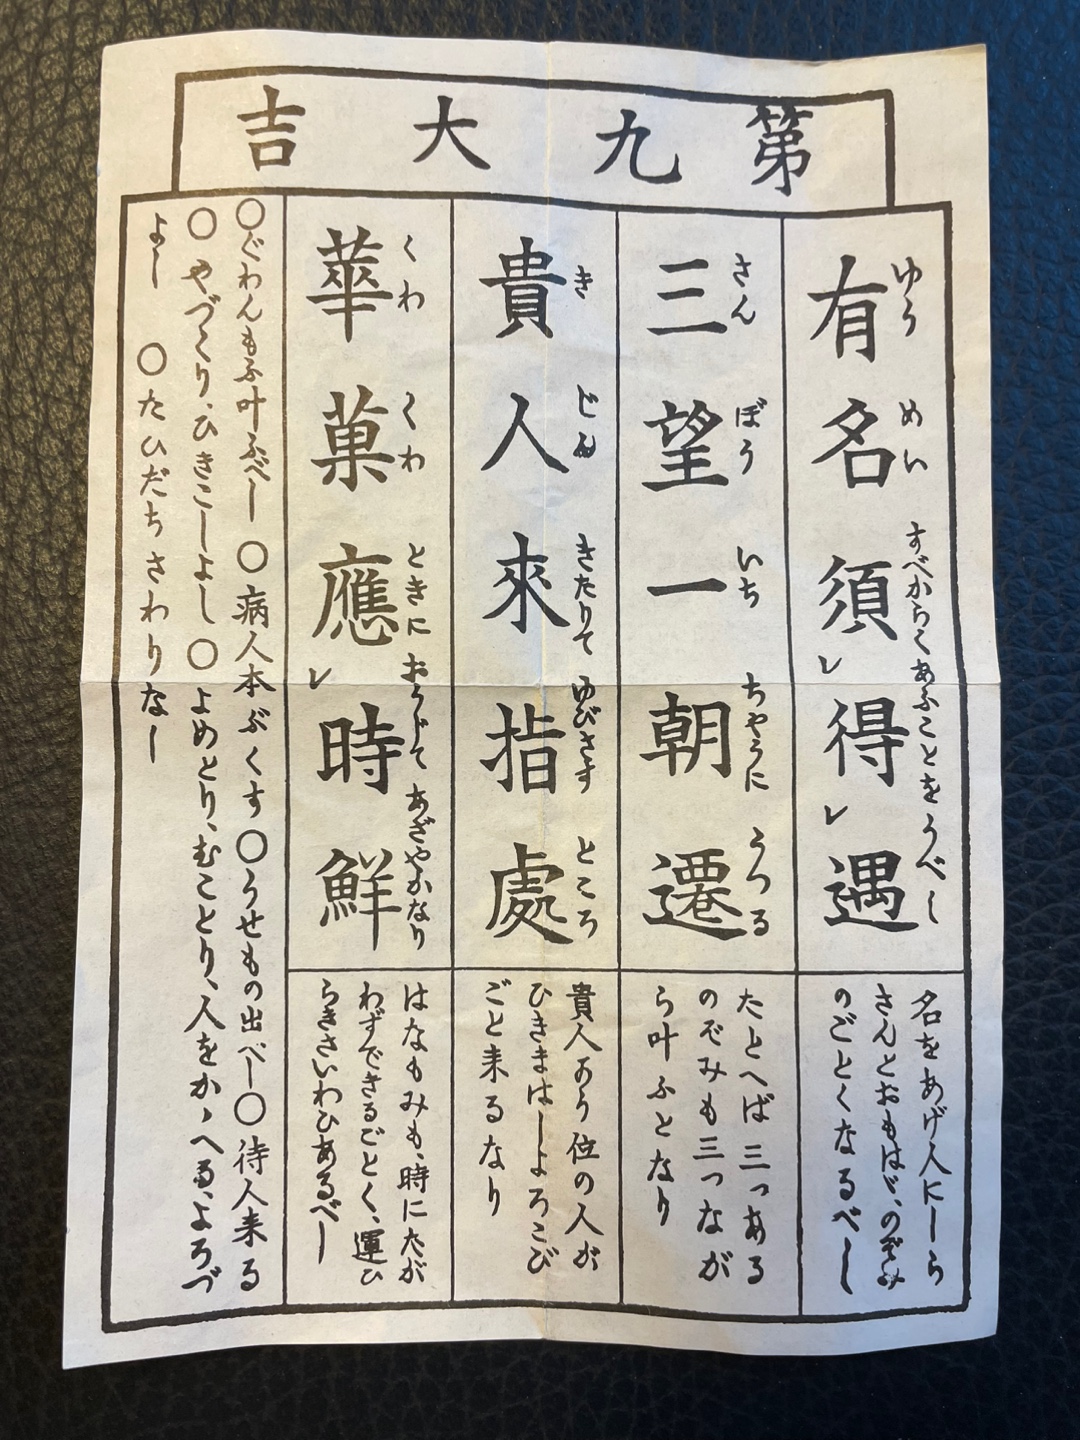 第九大吉
有名須レ得レ遇
ゆう めい すべからくあふことをうべし
名をあげ人にしら
さんとおもはゞ、のぞみ
のごとくなるべし
三望一朝遷
さん ぼう いち ちやうに うつる
たとへば三つある
のぞみも三つなが
ら叶ふとなり
貴人來指處
き じん きたりて ゆびさす ところ
貴人より位の人が
ひきまはしよろこび
ごと来るなり
華菓應レ時鮮
くわ くわ ときに おうじて あざやかなり
はなもみも、時にたが
わずできるごとく、運ひ
らきさいわひあるべし
○ぐわんもふ叶ふべし ○病人本ぶくす○うせもの出べし○待人来る
○やづくり、ひきこしよし○よめとり、むことり、人をかゝへる、よろづ
よし ○たひだちさわりなし